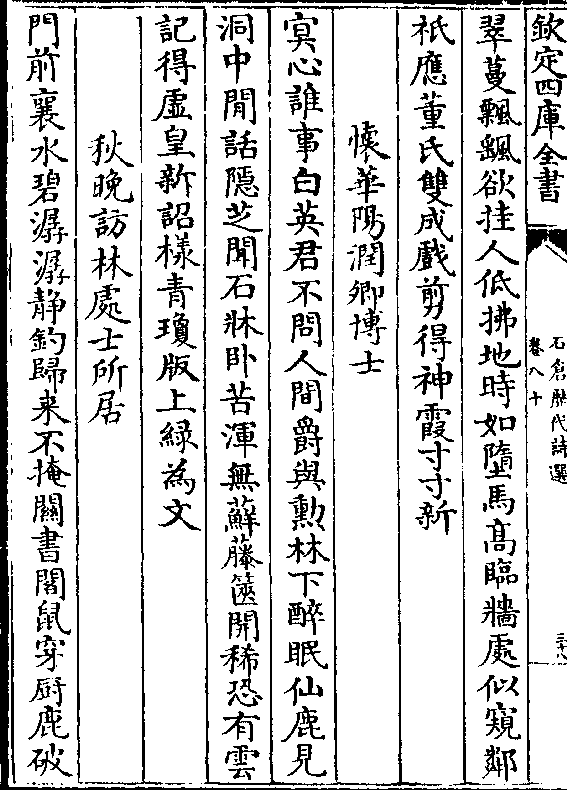 欽定四庫全書
石倉歴代詩選
卷八十
三十八
翠蔓飄飄欲挂人低拂地時如墮馬髙臨牆處似窺鄰
袛應董氏雙成戲剪得神霞寸寸新
懐華陽潤卿博士
㝠心誰事白英君不問人間爵與勲林下醉眠仙鹿見
洞中閒話隠芝聞石牀卧苦渾無蘚藤篋開稀恐有雲
記得虚皇新詔樣青瓊版上緑為文
秋晩訪林處士所居
門前襄水碧潺潺静釣歸来不掩關書閣鼠穿厨鹿破